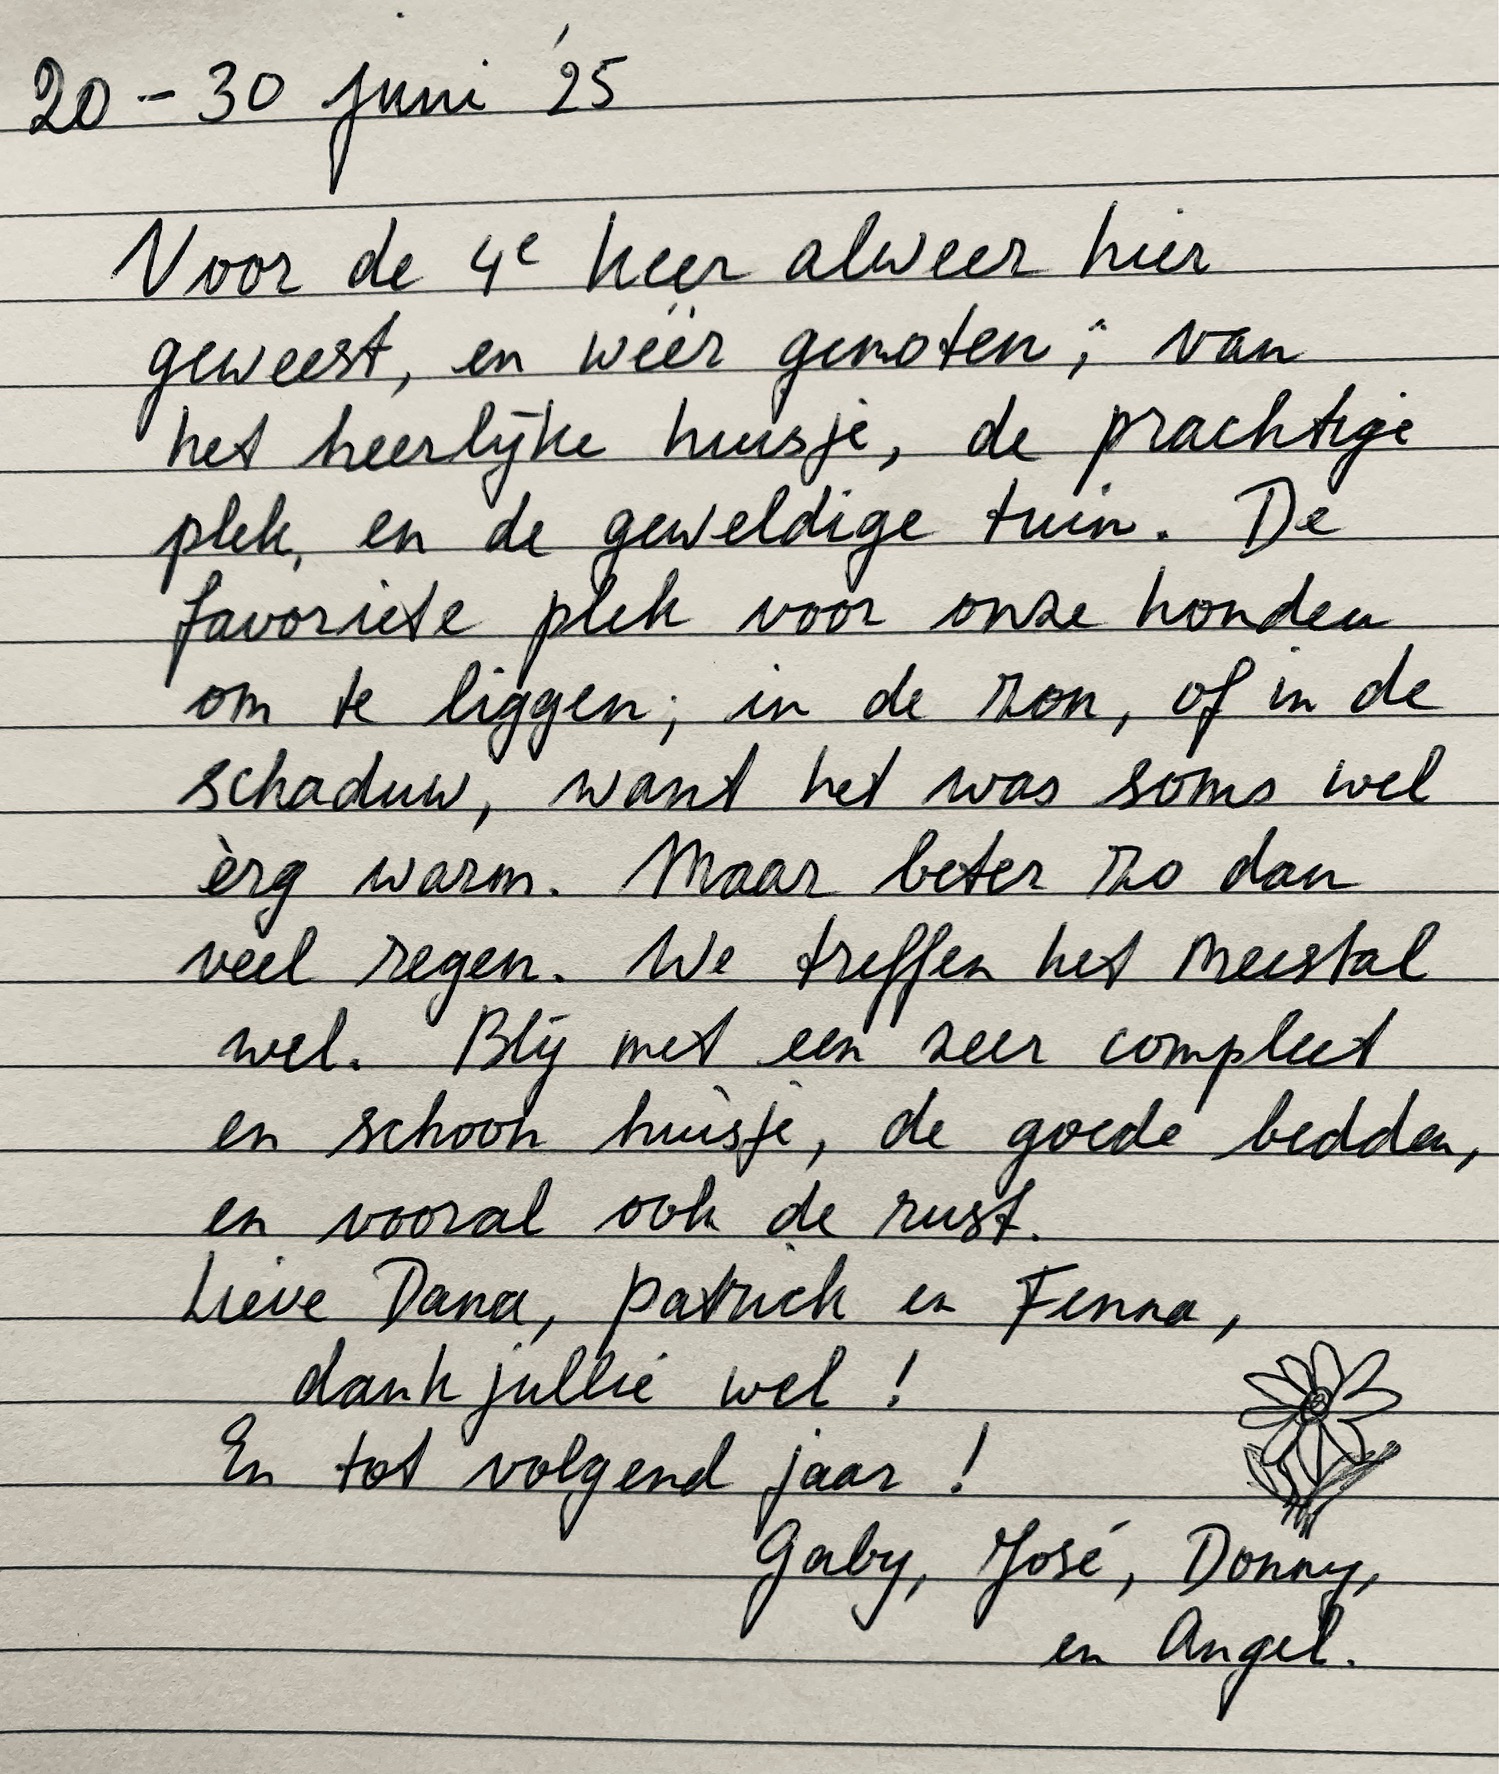 20 - 30 juni '25
Voor de 4e keer alweer hier
geweest, en wéér genoten; van
het heerlijke huisje, de prachtige
plek, en de geweldige tuin. De
favoriete plek voor onze honden
om te liggen; in de zon, of in de
schaduw, want het was soms wel
èrg warm. Maar beter zo dan
veel regen. We treffen het meestal
wel. Blij met een zeer compleet
en schoon huisje, de goede bedden,
en vooral ook de rust.
Lieve Dana, Patrick en Fenna,
dank jullie wel !
En tot volgend jaar !
Gaby, José, Donny,
en Angel.